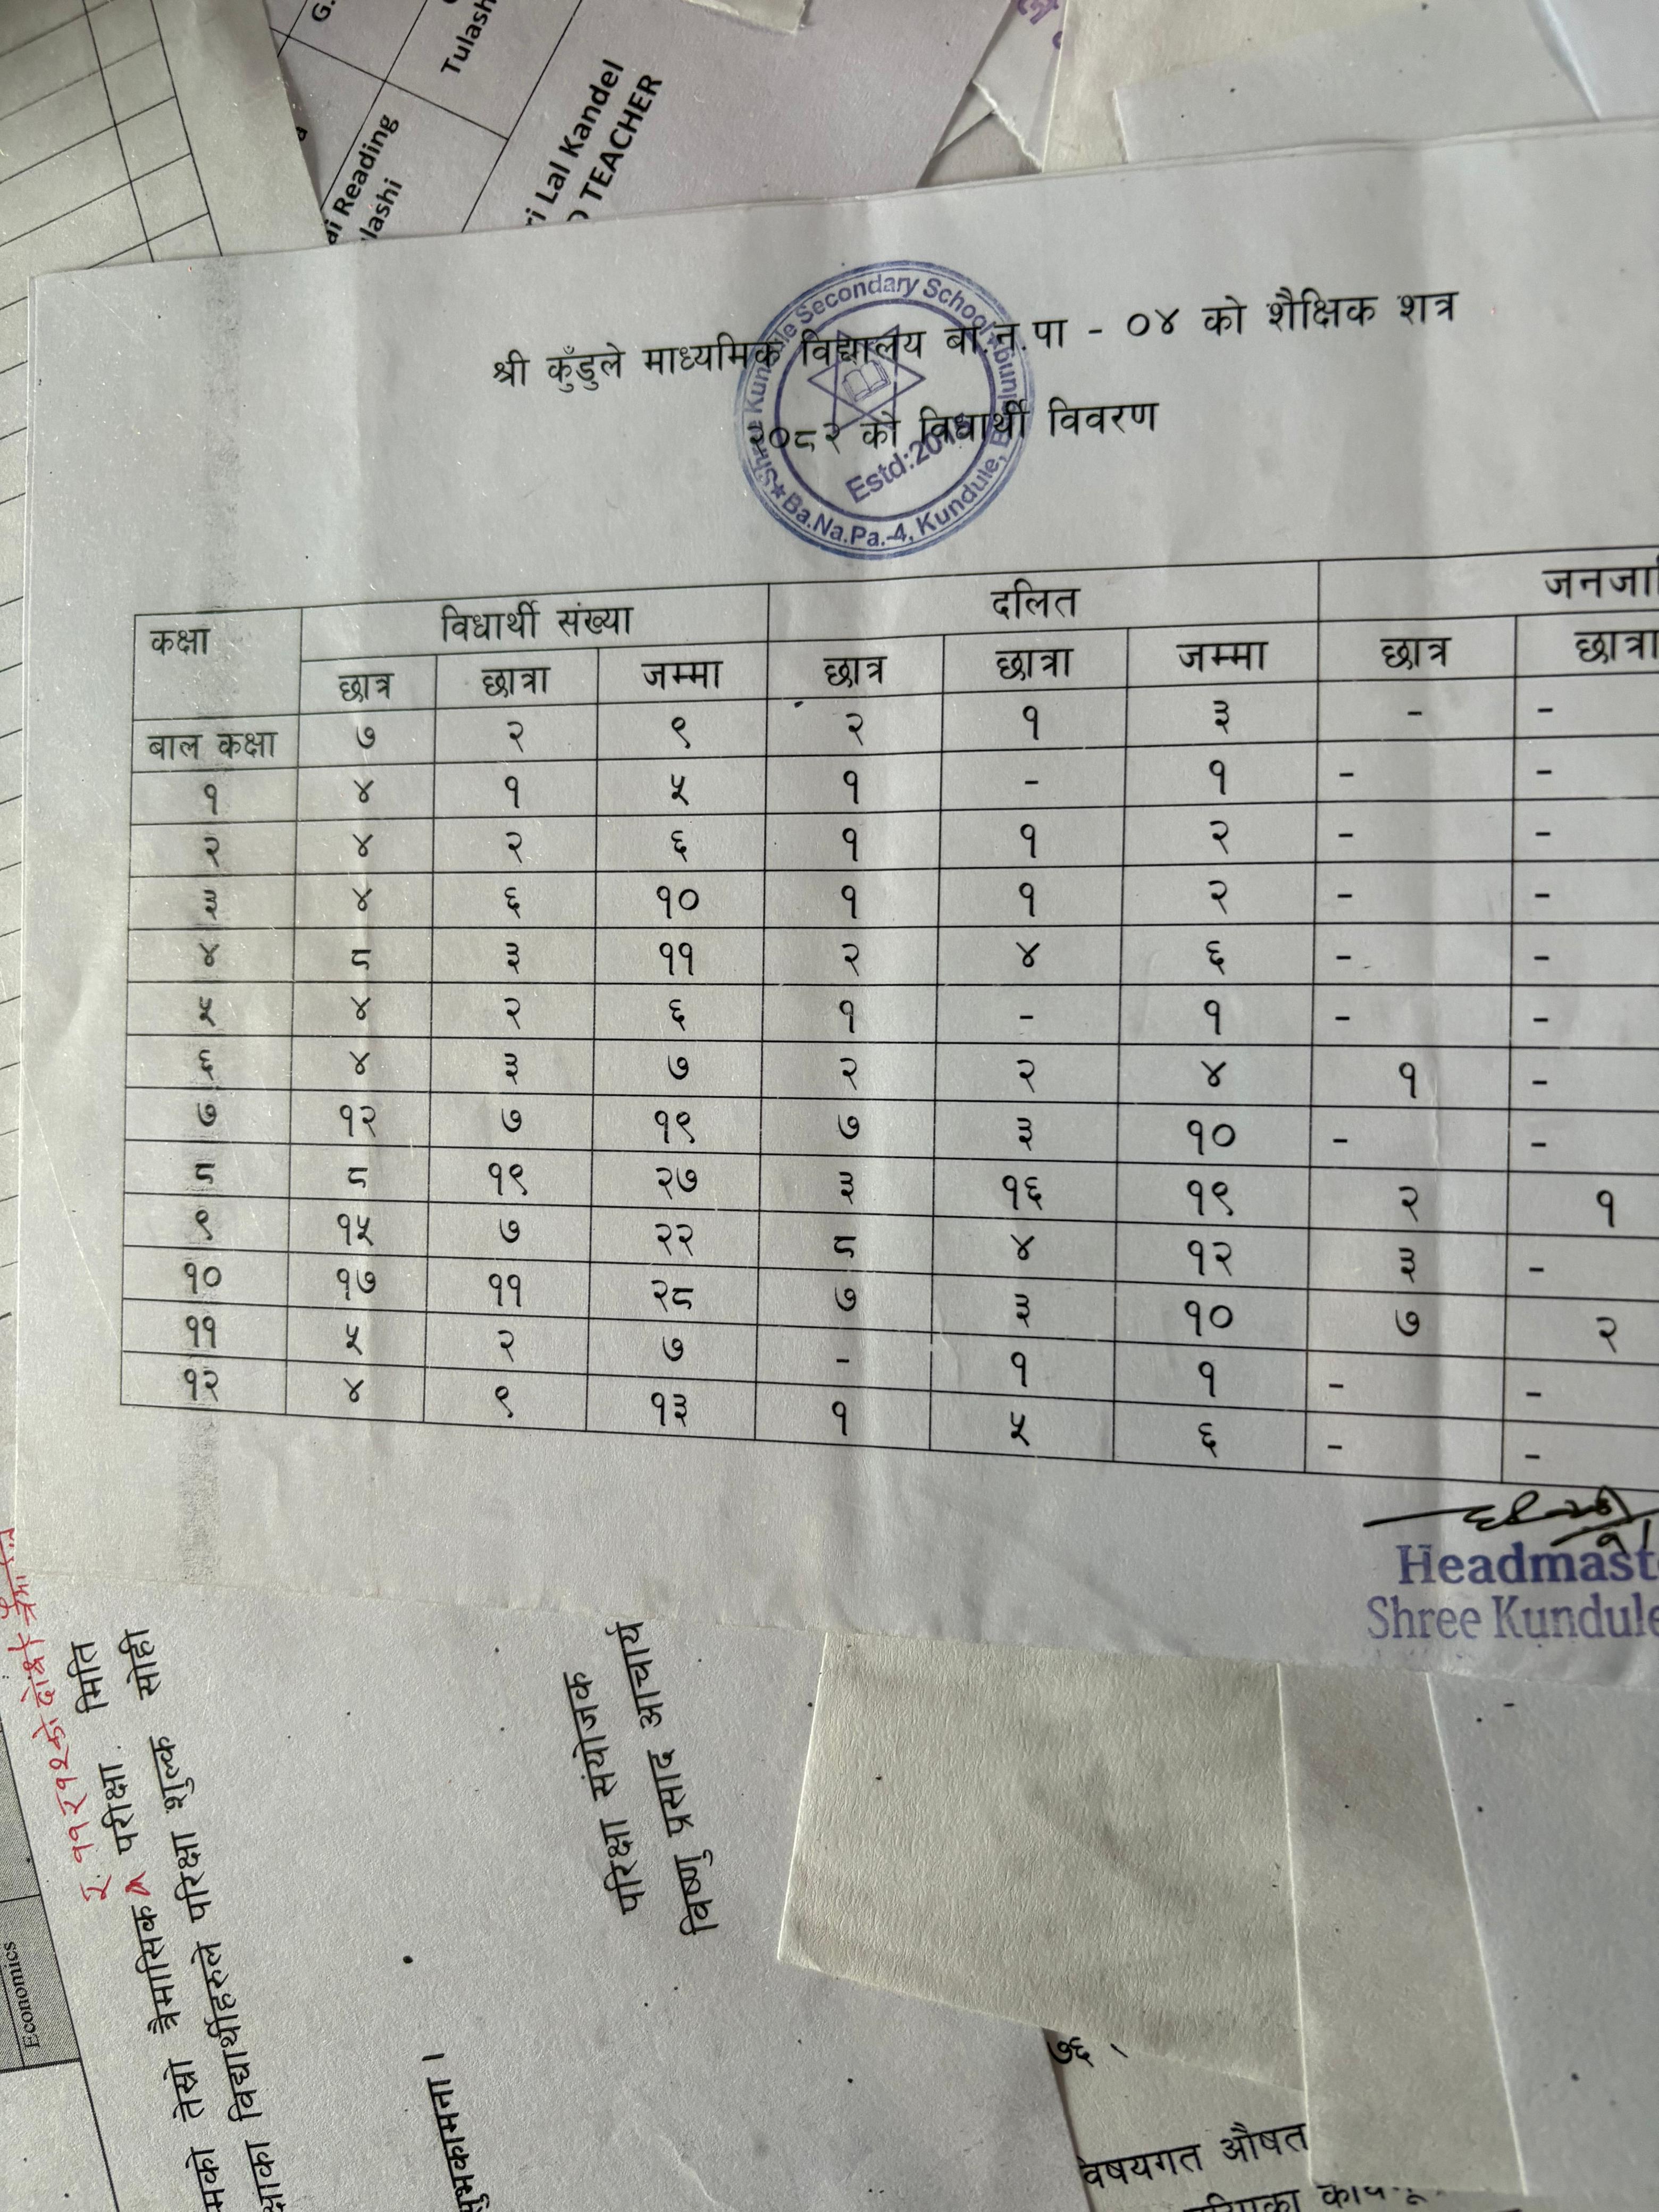 G.
Tulash
di Reading
lashi
ri Lal Kandel
D TEACHER
श्री कुँडुले माध्यमिक विद्यालय बा.न.पा - ०४ को शैक्षिक शत्र
२०८२ को विधार्थी विवरण
Shree Kundule Secondary School
Ba.Na.Pa.-4, Kundule,
Estd:20
कक्षा विधार्थी संख्या दलित जनजा
छात्र छात्रा जम्मा छात्र छात्रा जम्मा छात्र छात्रा
बाल कक्षा ७ २ ९ २ १ ३ - -
१ ४ १ ५ १ - १ - -
२ ४ २ ६ १ १ २ - -
३ ४ ६ १० १ १ २ - -
४ ८ ३ ११ २ ४ ६ - -
५ ४ २ ६ १ - १ - -
६ ४ ३ ७ २ २ ४ १ -
७ १२ ७ १९ ७ ३ १० - -
८ ८ १९ २७ ३ १६ १९ २ १
९ १५ ७ २२ ८ ४ १२ ३ -
१० १७ ११ २८ ७ ३ १० ७ २
११ ५ २ ७ - १ १ - -
१२ ४ ९ १३ १ ५ ६ - -
Headmast
Shree Kundule
परीक्षा मिति
मको तेस्रो त्रैमासिक
क्षाका विद्यार्थीहरुले परिक्षा शुल्क सोही
शुभकामना ।
परिक्षा संयोजक
विष्णु प्रसाद आचार्य
Economics
७६
वषयगत औषत